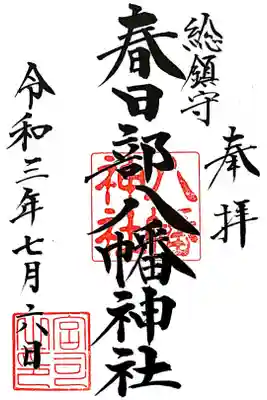 奉拝
総鎮守
春日部八幡神社
八幡神社
令和三年七月六日